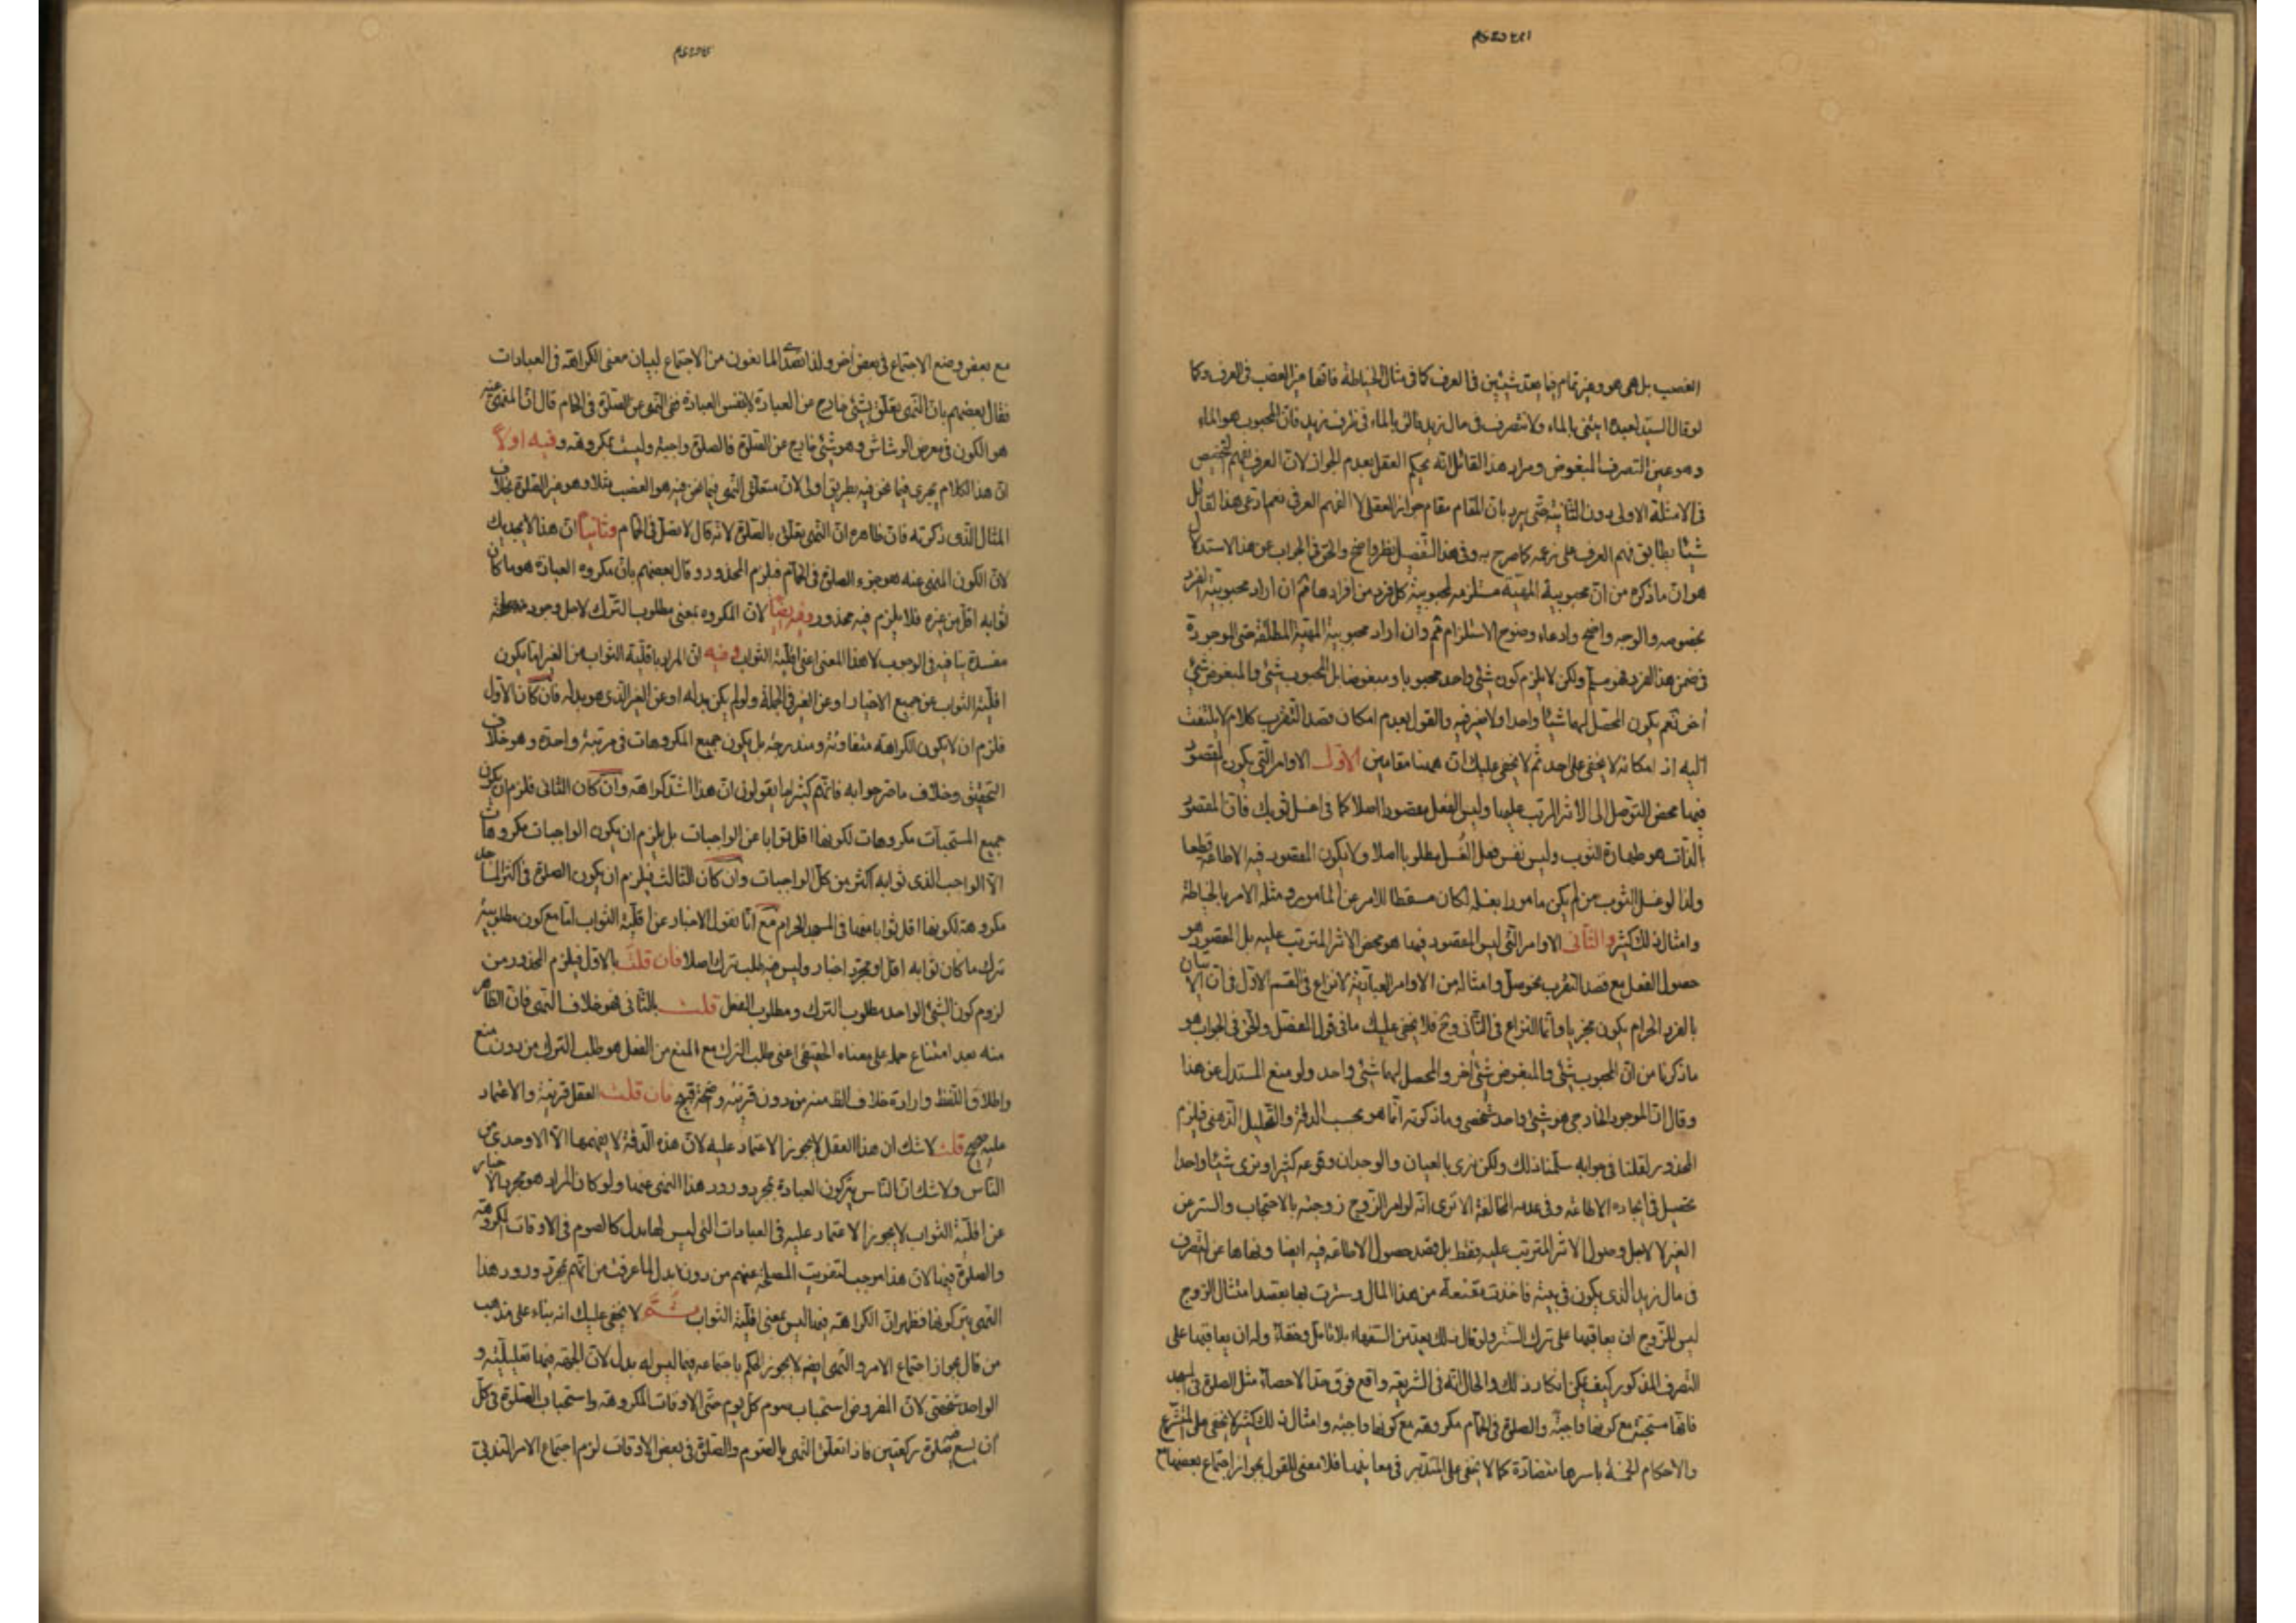 الغصب بل هى هو وهذا تمام فيما يعد شيئين فى العرف كما فى مثال الخياطة فانها غير الغصب فى العرف وكما
لو قال السيد لعبده ايتنى بالماء ولا تتصرف فى مال زيد فاتى بالماء فى ظرف زيد فان المحبوب هو الماء
وهو عين التصرف المبغوض ومراد هذا القائل انه يحكم العقل بعدم الجواز لا ان العرف يفهم التخصيص
فى الامثلة الاولى دون الثانية حتى يرد بان المقام مقام جواز العقلى لا الفهم العرفى نعم ادعى هذا القائل
شيئا يطابق فهم العرف على زعمه كما صرح به وفى هذا التفصيل نظر واضح والحق فى الجواب عن هذا الاستدلال
هو ان ما ذكره من ان محبوبية المهية مستلزمه لمحبوبية كل فرد من افرادها ثم ان اراد محبوبية الفرد
بخصوصه والوجه واضح وادعاء وضوح الاستلزام ثم وان اراد محبوبية المهية المطلقة حتى الموجودة
فى ضمن هذا الفرد فهو مسلم ولكن لا يلزم كون شئ واحد محبوبا ومبغوضا بل المحبوب شئ والمبغوض شئ
آخر نعم يكون المحصل لهما شيئا واحدا ولا ضير فيه والقول بعدم امكان قصد التقرب كلام لا يلتفت
اليه اذ امكانه لا يخفى على احد ثم لا يخفى عليك ان ههنا مقامين الاول الاوامر التى يكون المقصود
فيها محض التوصل الى الاثر المرتب عليها وليس الفعل مقصودا اصلا كما فى اغسل ثوبك فان المقصود
بالذات هو طهارة الثوب وليس نفس فعل الغسل مطلوبا اصلا ولا يكون المقصود فيه الاطاعة قطعا
ولذا لو غسل الثوب من لم يكن مامورا بغسله لكان مسقطا للامر عن المامور به ومثله الامر بالخياطة
وامثال ذلك كثير والثانى الاوامر التى ليس المقصود فيها هو محض الاثر المترتب عليه بل المقصود هو
حصول الفعل مع قصد التقرب نحو صل وامثاله من الاوامر العبادية لا نزاع فى القسم الاول فى ان الاتيان
بالفرد الحرام يكون مجزيا وانما النزاع فى الثانى وح فلا يخفى عليك ما فى قول المفصل والحق فى الجواب هو
ما ذكرنا من ان المحبوب شئ والمبغوض شئ آخر والمحصل لهما شئ واحد ولو منع المستدل عن هذا
وقال ان الموجود الخارجى هو شئ واحد شخصى وما ذكرته انما هو بحسب الدقة والتحليل الذهنى فيلزم
المحذور لقلنا فى جوابه سلمنا ذلك ولكن نرى بالعيان والوجدان وقوعه كثيرا ونرى شيئا واحدا
يحصل فى ايجاده الاطاعة وفى عدمه المخالفة الا ترى انه لو امر الزوج زوجته بالاحتجاب والستر من
الغير لا لاجل وصول الاثر المترتب عليه فقط بل قصد حصول الاطاعة فيه ايضا ونهاها عن التصرف
فى مال زيد الذى يكون فى بيته فاخذت مقنعة من هذا المال وسترت بها بقصد امتثال الزوج
ليس للزوج ان يعاقبها على ترك الستر ولو قال ذلك يعد من السفهاء بلا تامل وخفاء وله ان يعاقبها على
التصرف المذكور كيف يمكن انكار ذلك والحال انه فى الشريعة واقع فوق حد الاحصاء مثل الصلوة فى المسجد
فانها مستحبة مع كونها واجبة والصلوة فى الحمام مكروهه مع كونها واجبه وامثال ذلك كثير لا يخفى على المتشرع
والاحكام الخمسة باسرها متضادة كما لا يخفى على المتدبر فى معانيها فلا معنى للقول بجواز اجتماع بعضها مع
مع بعض ومنع الاجتماع فى بعض آخر ولذا تصدى المانعون من الاجتماع لبيان معنى الكراهة فى العبادات
فقال بعضهم بان النهى يتعلق بشئ خارج عن العبادة لا بنفس العبادة ففى النهى عن الصلوة فى الحمام قال ان المنهى عنه
هو الكون فى معرض الرشاش وهو شئ خارج عن الصلوة فالصلوة واجبة وليست بمكروهه وفيه اولا
ان هذا الكلام يجرى فيما نحن فيه بطريق اولى لان متعلق النهى فيما نحن فيه هو الغصب مثلا وهو غير الصلوة بخلاف
المثال الذى ذكرته فان ظاهره ان النهى يتعلق بالصلوة لانه قال لا تصل فى الحمام وثانيا ان هذا لا يجديك
لان الكون المنهى عنه هو جزء الصلوة فى الحمام فيلزم المحذور وقال بعضهم بان مكروه العبادة هو ما كان
ثوابه اقل من غيره فلا يلزم فيه محذور لان المكروه بمعنى مطلوب الترك لاجل وجود
مفسدة ينافيه فى الوجوب لا هذا المعنى اعنى اقلية الثواب وفيه ان المراد باقلية الثواب من الغير اما يكون
اقلية الثواب عن جميع الاغيار او عن الغير فى الجملة ولو لم يكن بدله او عن الغير الذى هو بدله فان كان الاول
فلزم ان لا يكون الكراهة متفاوتة ومندرجة بل يكون جميع المكروهات فى مرتبة واحدة وهو خلاف
التحقيق وخلاف ما صرحوا به فانهم كثيرا ما يقولون ان هذا اشد كراهة وان كان الثانى فلزم ان يكون
جميع المستحبات مكروهات لكونها اقل ثوابا عن الواجبات بل يلزم ان يكون الواجبات مكروهات
الا الواجب الذى ثوابه اكثر من كل الواجبات وان كان الثالث فيلزم ان يكون الصلوة فى اكثر المساجد
مكروهة لكونها اقل ثوابا منها فى المسجد الحرام مع انا نقول الاخبار عن اقلية الثواب اما مع كون مطلوبية
ترك ما كان ثوابه اقل او مجرد اخبار وليس فيه طلب ترك اصلا فان قلت بالاول فيلزم المحذور من
لزوم كون الشئ الواحد مطلوب الترك ومطلوب الفعل قلت بالثانى فهو خلاف النهى فان الظاهر
منه بعد امتناع حمله على معناه الحقيقى اعنى طلب الترك مع المنع من الفعل هو طلب الترك من دون منع
واطلاق اللفظ وارادة خلاف الظ منه من دون قرينة واضحة قبيح فان قلت العقل قرينة والاعتماد
عليه صحيح قلت لا شك ان هذا العقل لا يجوز الاعتماد عليه لان هذه الدقة لا يفهمها الا الاوحدى من
الناس ولا شك ان الناس يتركون العبادة بمجرد ورود هذا النهى عنها ولو كان المراد هو مجرد الاخبار
عن اقلية الثواب لا يجوز الاعتماد عليه فى العبادات التى ليس لها بدل كالصوم فى الاوقات المكروهة
والصلوة فيها لان هذا موجب لتفويت المصلحة عنهم من دون بدل لما عرفت من انهم بمجرد ورود هذا
النهى يتركونها فظهر ان الكراهة فيها ليس بمعنى اقلية الثواب ثم لا يخفى عليك انه بناء على مذهب
من قال بجواز اجتماع الامر والنهى ايضه لا يجوز الحكم باجتماعه فيما ليس له بدل لان الجهة فيها تعليلية و
الواحد شخصى لان المفروض استحباب صوم كل يوم حتى الاوقات المكروهة واستحباب الصلوة فى كل
آن يسع صلوة ركعتين فاذا تعلق النهى بالصوم والصلوة فى بعض الاوقات لزم اجتماع الامر الندبى